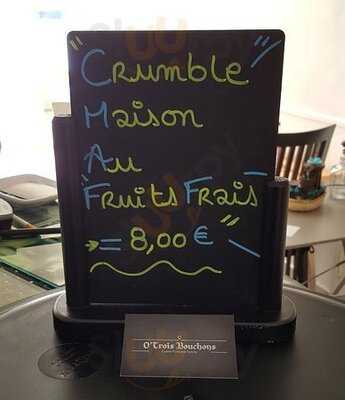 " Crumble "
Maison
Au
Fruits Frais "
→ = 8,00 €
O'Trois Bouchons